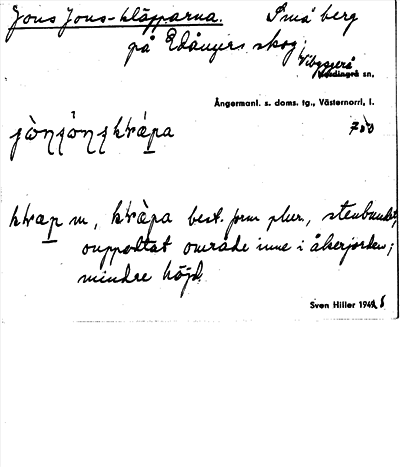 Jons Jons-kläpparna. Små berg
på Edångers skog.
Vibyggerå
Nordingrå sn.
Ångermanl. s. doms. tg., Västernorrl. l.
700
klrap m, best. form plur., stenbundet,
ouppodlat område inne i åkerjorden;
mindre höjd.
Sven Hiller 1948